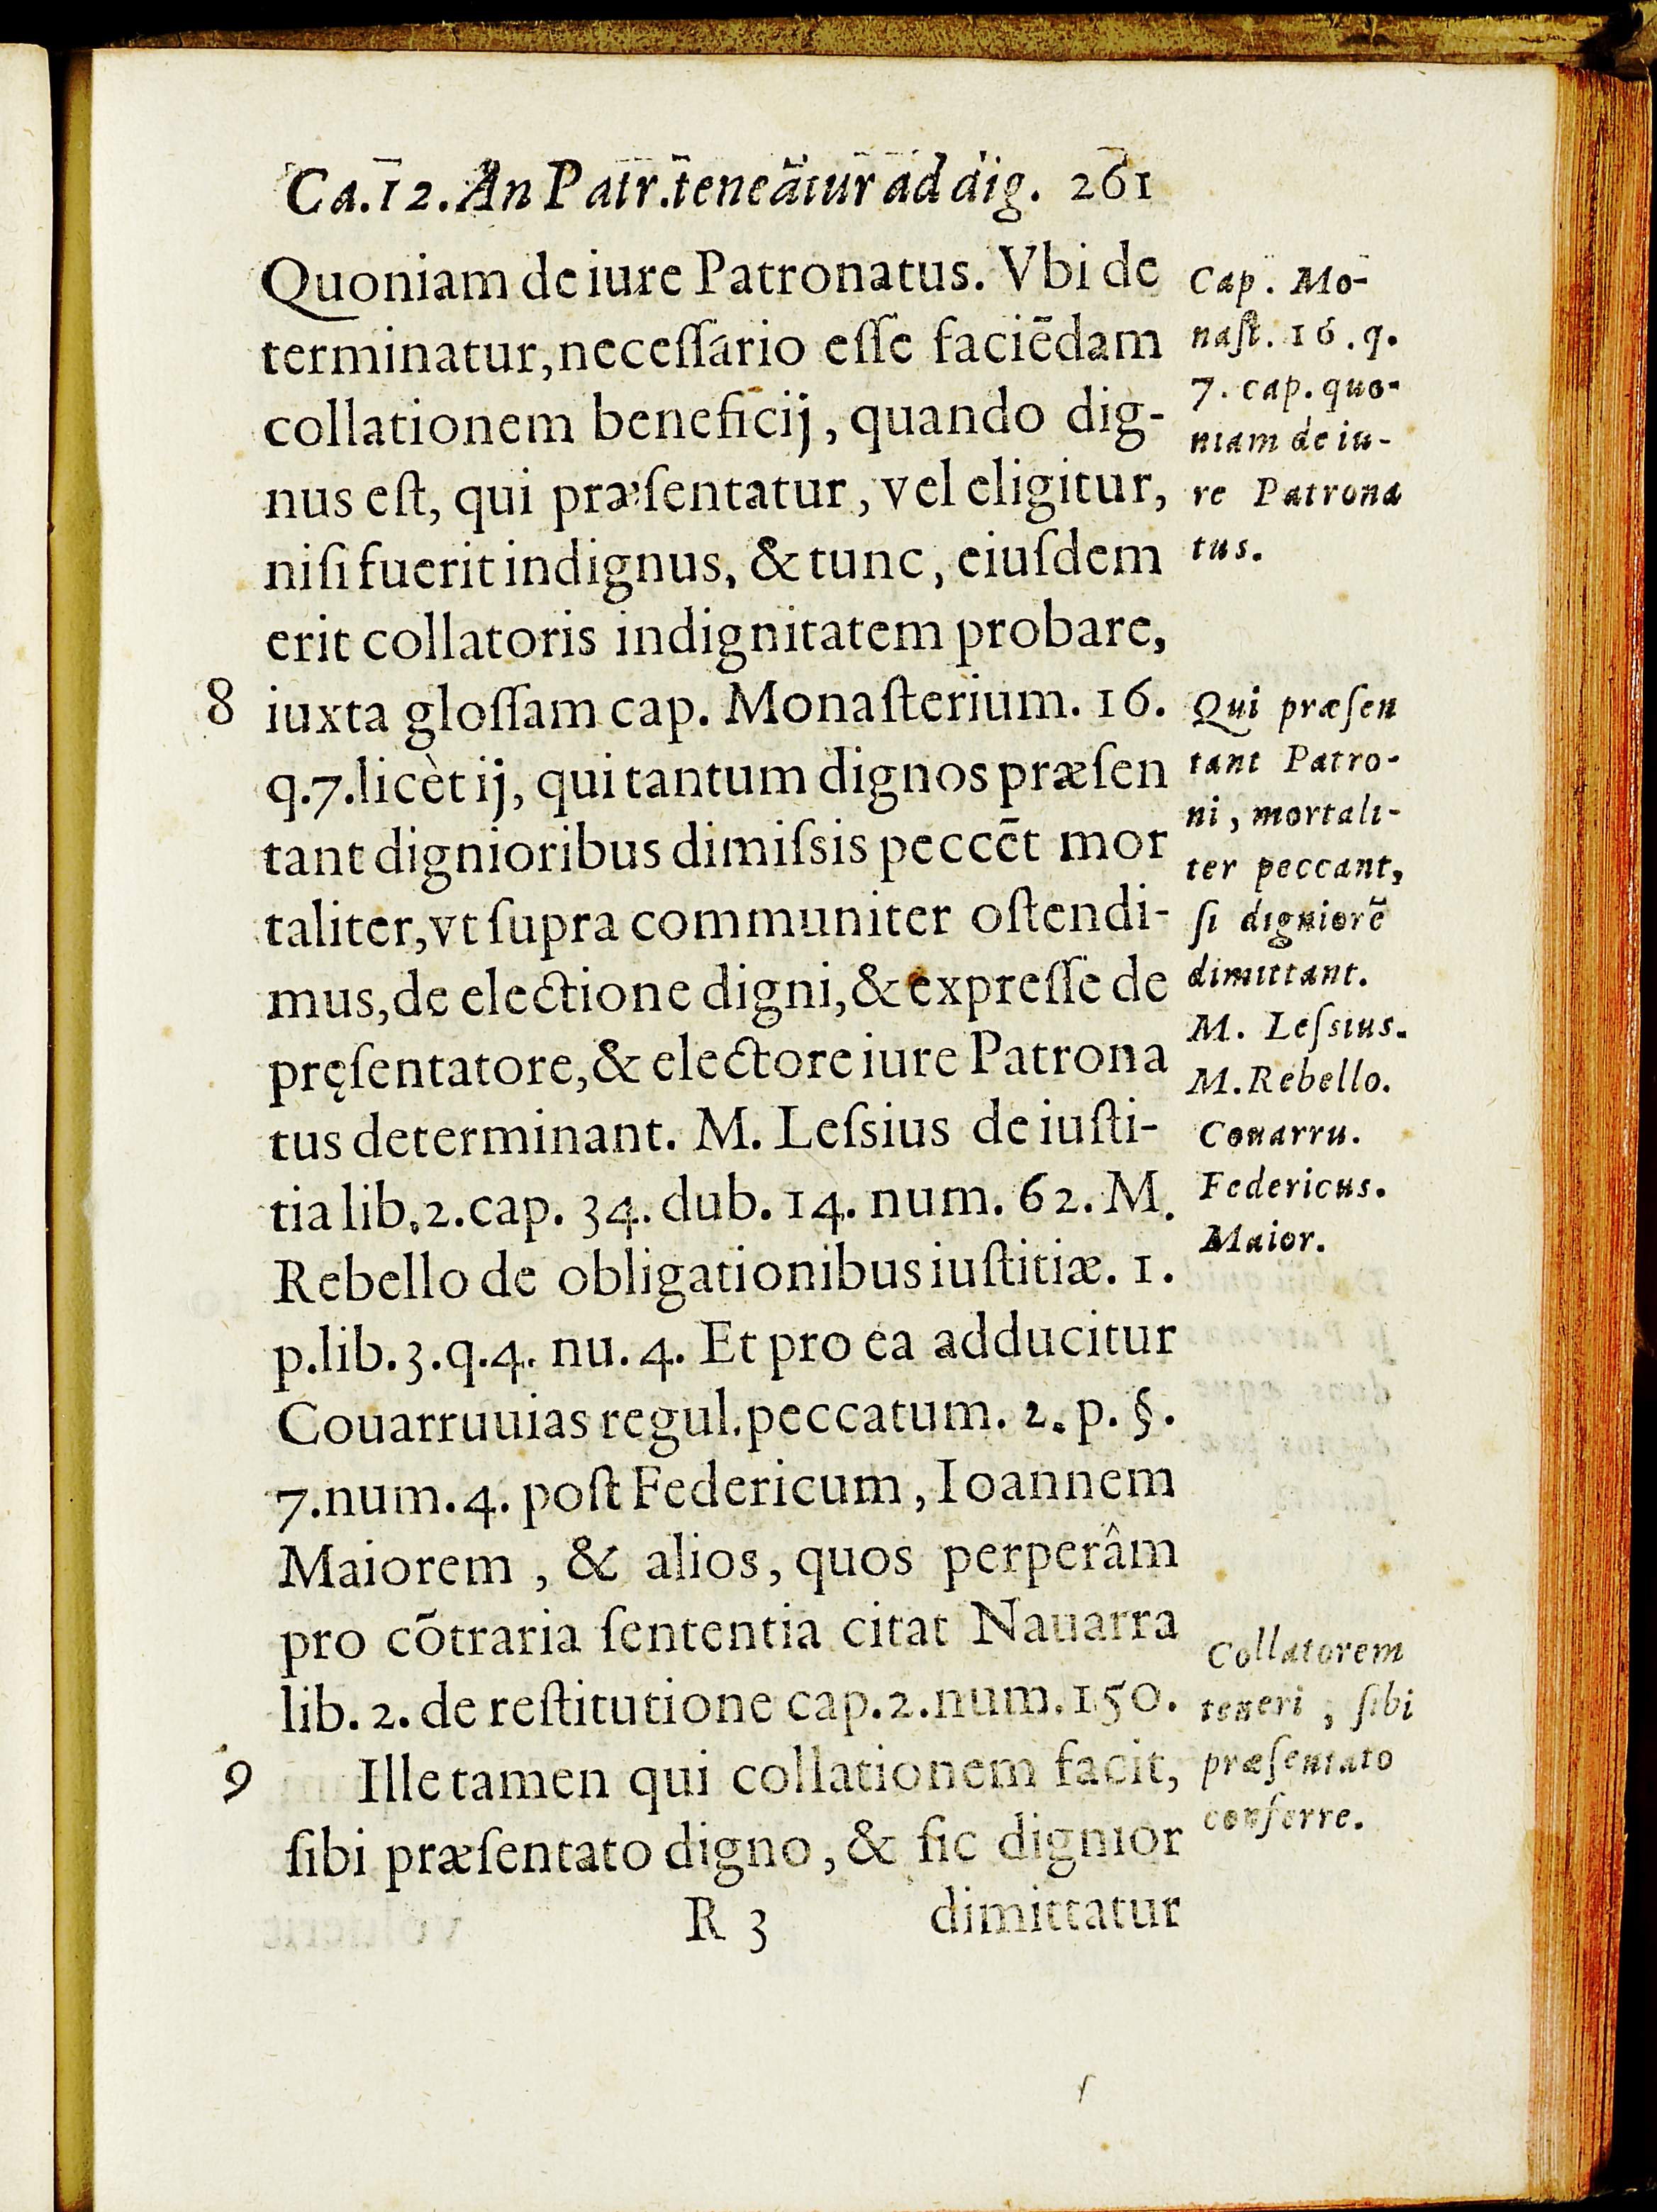 Ca.12. An Patr.teneātur ad dig. 261
Quoniam de iure Patronatus. Vbi de
terminatur, neceſſario eſſe faciēdam
collationem beneficij, quando dig-
nus eſt, qui præſentatur, vel eligitur,
niſi fuerit indignus, & tunc, eiuſdem
erit collatoris indignitatem probare,
8 iuxta gloſſam cap. Monaſterium. 16.
q.7. licèt ij, qui tantum dignos præſen
tant dignioribus dimiſsis peccēt mor
taliter, vt ſupra communiter oſtendi-
mus, de electione digni, & expreſſe de
pręſentatore, & electore iure Patrona
tus determinant. M. Leſsius de iuſti-
tia lib. 2. cap. 34. dub. 14. num. 62. M.
Rebello de obligationibus iuſtitiæ. 1.
p. lib. 3. q. 4. nu. 4. Et pro ea adducitur
Couarruuias regul. peccatum. 2. p. §.
7. num. 4. poſt Federicum, Ioannem
Maiorem, & alios, quos perperâm
pro cõtraria ſententia citat Nauarra
lib. 2. de reſtitutione cap. 2. num. 150.
9 Ille tamen qui collationem facit,
ſibi præſentato digno, & ſic dignior
R 3 dimittatur
Cap. Mo-
naſt. 16. q.
7. cap. quo-
niam de iu-
re Patrona
tus.
Qui præſen
tant Patro-
ni, mortali-
ter peccant,
ſi digniorē
dimittant.
M. Leſsius.
M. Rebello.
Couarru.
Federicus.
Maior.
Collatorem
teneri, ſibi
præſentato
conferre.